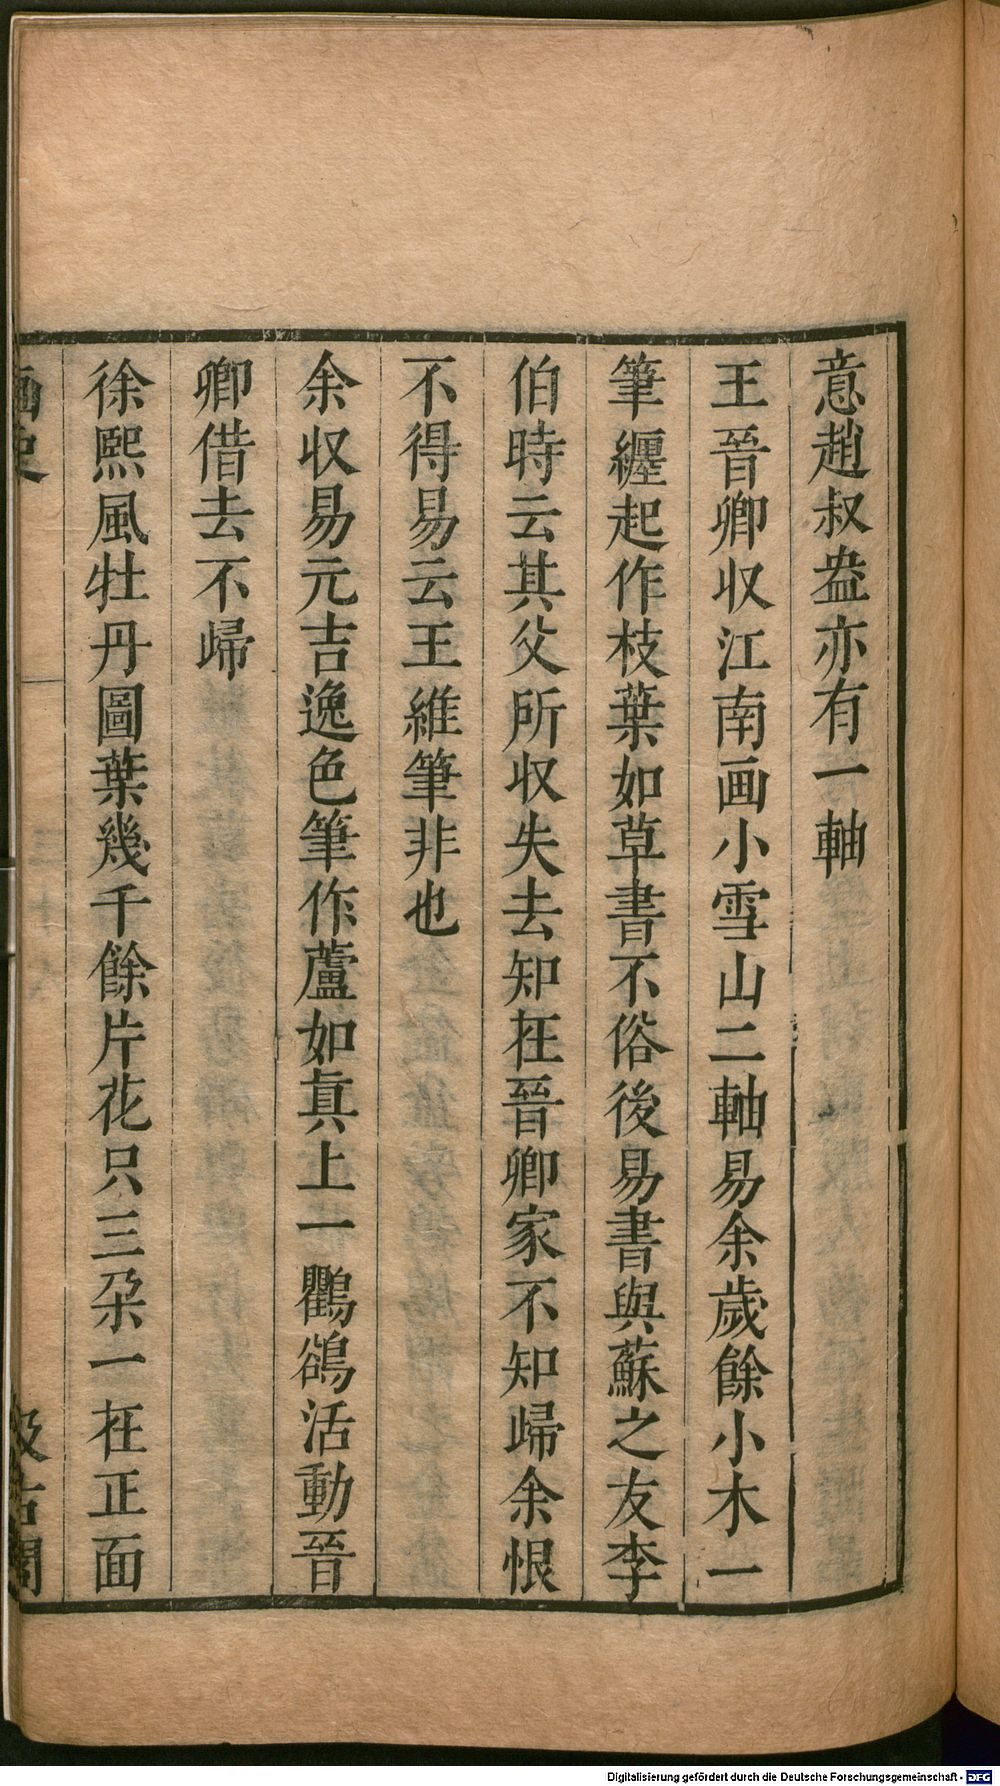 意趙叔盎亦有一軸
王晉卿収江南画小雪山二軸易余歲餘小木一
筆纏起作枝葉如草書不俗後易書與蘇之友李
伯時云其父所収失去知在晉卿家不知歸余恨
不得易云王維筆非也
余収易元吉逸色筆作蘆如真上一鸜鵒活動晉
卿借去不歸
徐熙風牡丹圖葉幾千餘片花只三朶一在正面
畫史
汲古閣
Digitalisierung gefördert durch die Deutsche Forschungsgemeinschaft - DFG